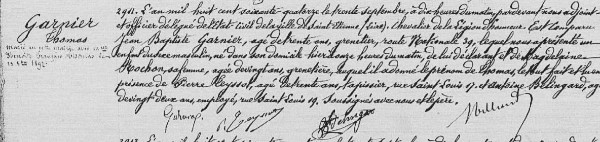 Garnier
Thomas
2911. L'an mil huit cent soixante quatorze le trente septembre, à dix heures du matin, pardevant nous adjoint
et officier délégué de l'État-civil de la ville de Saint Etienne, (Loire), Chevalier de la Légion d'honneur. Est comparu
Jean Baptiste Garnier, agé de trente ans, grenetier, route Nationale 39, lequel nous a présenté un
enfant du sexe masculin, né dans son domicile hier à onze heures du matin, de lui déclarant et de Magdeleine
Rochon, sa femme, agée de vingt ans, grenetière, auquel il a donné le prénom de Thomas, Ce fut fait et lu en
présence de Pierre Peyssot, agé de trente ans, tapissier, rue Saint Louis 17. et Antoine Belingard, agé
de vingt deux ans, employé, rue Saint Louis 19. Soussignés avec nous et le père.
Garnier